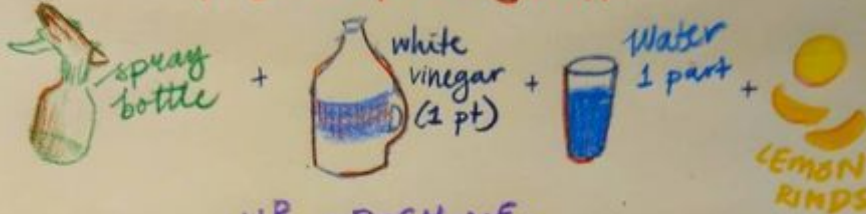 spray
bottle
+
white
vinegar
(1 pt)
+
Water
1 part
+
LEMON
RINDS